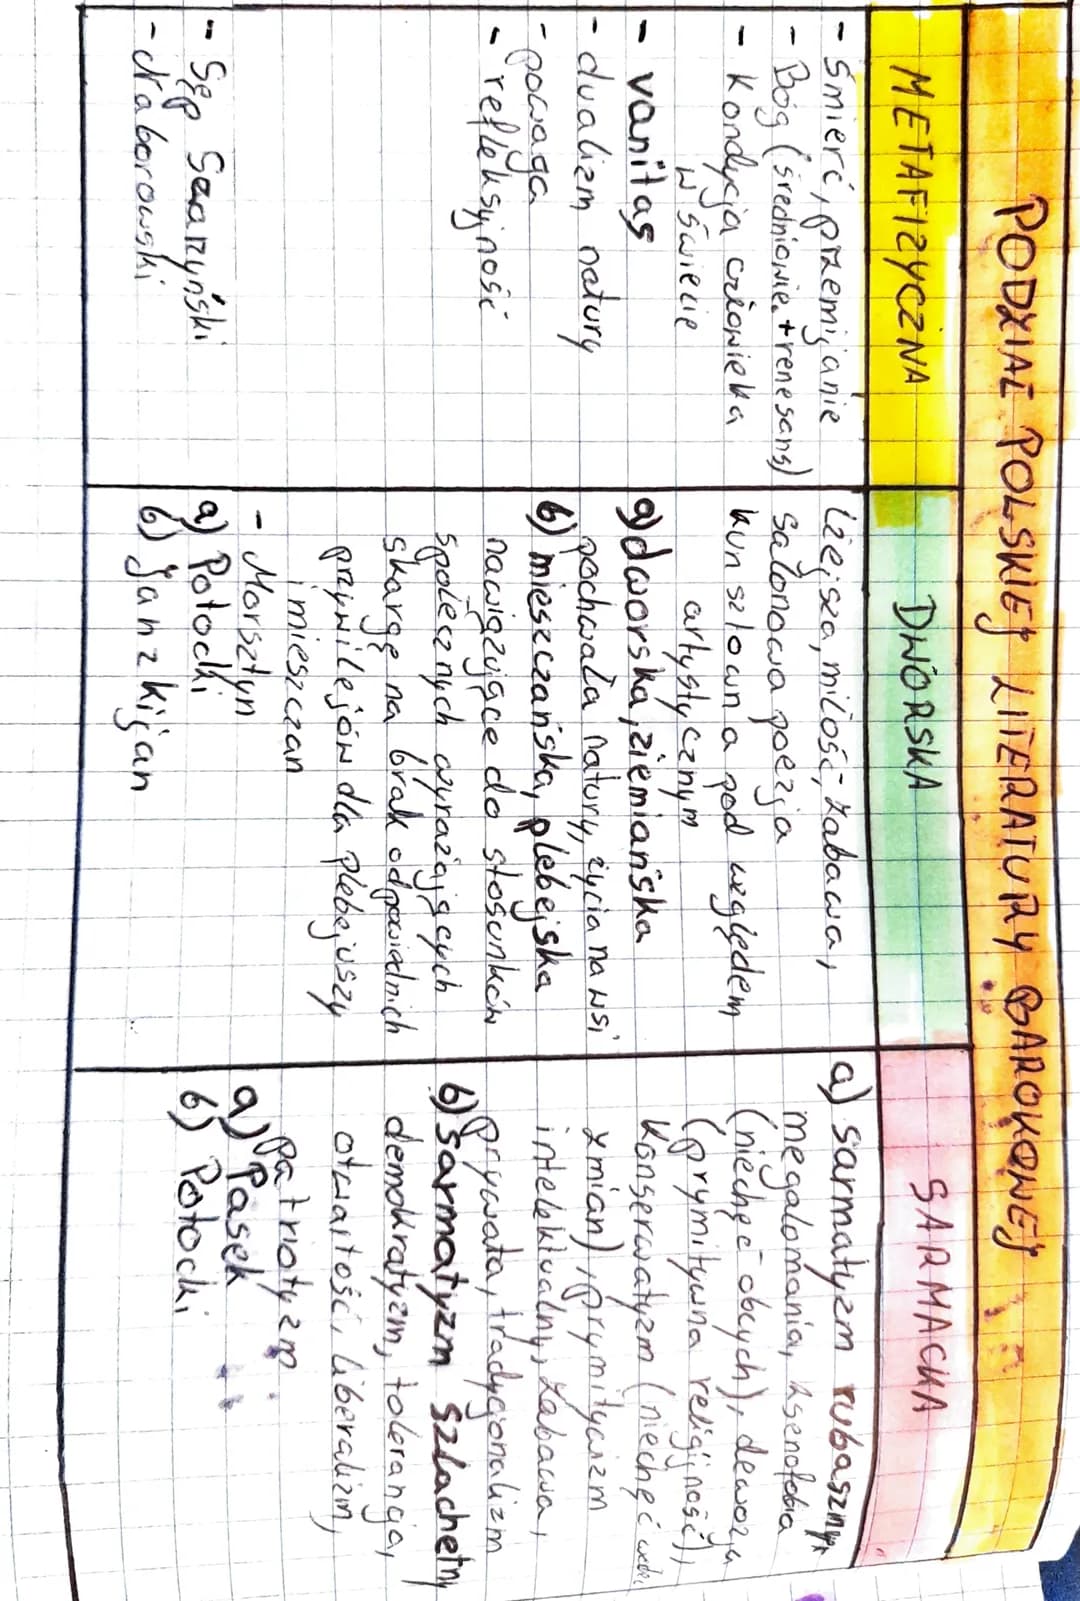 PODZIAŁ POLSKIEJ LITERATURY BAROKOWEJ
METAFIZYCZNA
- śmierć, przemijanie
- Bóg (średniowie. + renesans)
- Kondycja człowieka
w świecie
- vanitas
- dualizm natury
- powaga
- refleksyjność
- Sęp Szarzyński
- Naborowski
DWORSKA
lżejsza, miłość, zabawa,
salonowa poezja
kunsztowna pod względem
artystycznym
a) dworska, ziemiańska
pochwała natury, życia na wsi
b) mieszczańska, plebejska
nawiązujące do stosunków
społecznych wyrażających
skargę na brak odpowiednich
przywilejów dla plebejuszy
i mieszczan
- Morsztyn
a) Potocki
b) Jan z Kijan
SARMACKA
a) sarmatyzm rubaszny
megalomania, ksenofobia
(niechęć obcych), dewocja
(prymitywna religijność),
Konserwatyzm (niechęć wobec
zmian), prymitywizm
intelektualny, zabawa,
prywata, tradycjonalizm
b) sarmatyzm szlachetny
demokratyzm, tolerancja,
otwartość, liberalizm,
patriotyzm
a) Pasek
b) Potocki